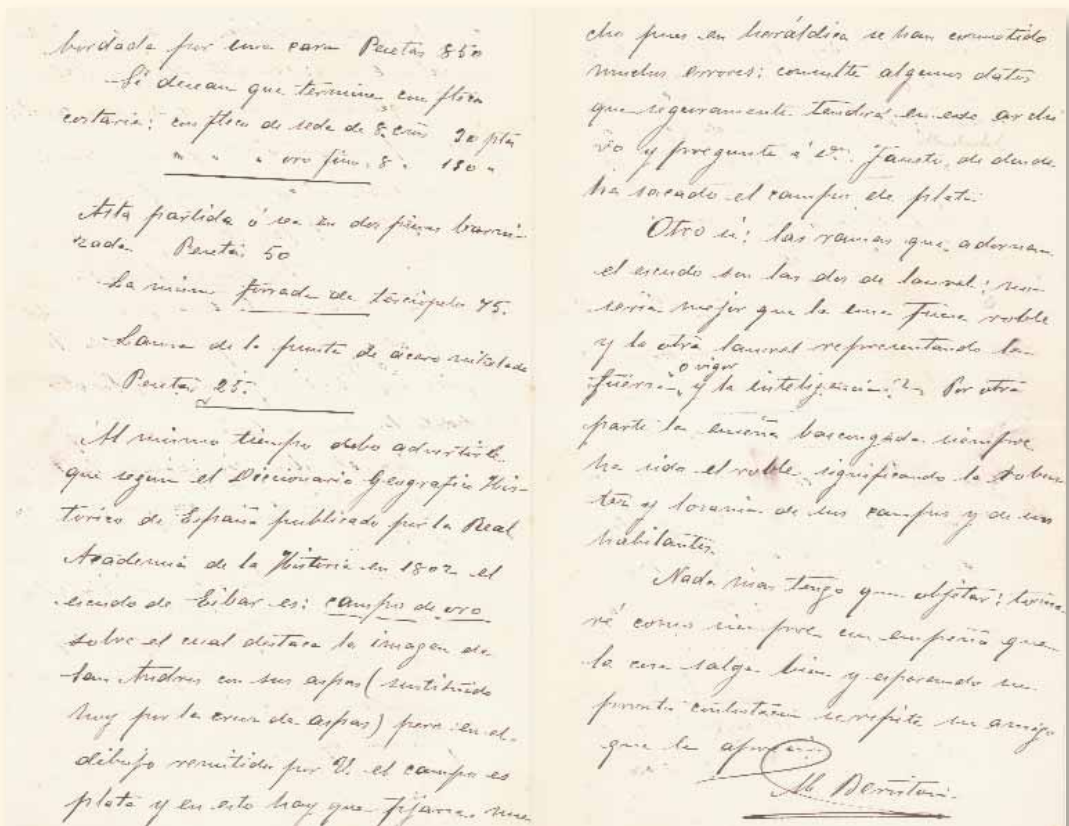 bordada por una cara Pesetas 850
Si desean que termine con fleco
costaria: con fleco de seda de 8 cms 90 ptas
" " " oro fino 8 " 180 "
Asta partida ó sea en dos piezas barni-
zada Pesetas 50
La misma forrada de terciopelo 75.
Lanza de la punta de acero nikelada
Pesetas 25.
Al mismo tiempo debo advertirle
que segun el Diccionario Geografico His-
torico de España publicado por la Real
Academia de la Historia en 1802 el
escudo de Eibar es: campo de oro
sobre el cual destaca la imagen de
San Andres con sus aspas (sustituido
hoy por la cruz de aspas) pero en el
dibujo remitido por V. el campo es
plata y en esto hay que fijarse mu-
cho pues en heráldica se han cometido
muchos errores: consulte algunos datos
que seguramente tendrá en ese archi
vo y pregunte á Dn. Fausto, de donde
ha sacado el campo de plata.
Otro si: las ramas que adornan
el escudo son las dos de laurel: no
seria mejor que la una fuera roble
y la otra laurel representando la
fuerza o vigor y la inteligencia? Por otra
parte la enseña bascongada siempre
ha sido el roble significando la robus
tez y lozania de sus campos y de sus
habitantes.
Nada mas tengo que objetar: toma-
ré como siempre con empeño que
la cosa salga bien y esperando su
pronta contestacion se repite su amigo
que le aprecia